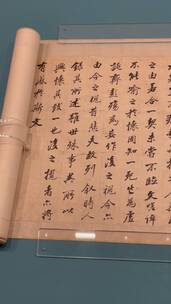 之由若合一契未嘗不臨文嗟悼
不能喻之於懷固知一死生為虛
誕齊彭殤為妄作後之視今亦
由今之視昔悲夫故列敘時人
錄其所述雖世殊事異所以
興懷其致一也後之攬者亦將
有感於斯文